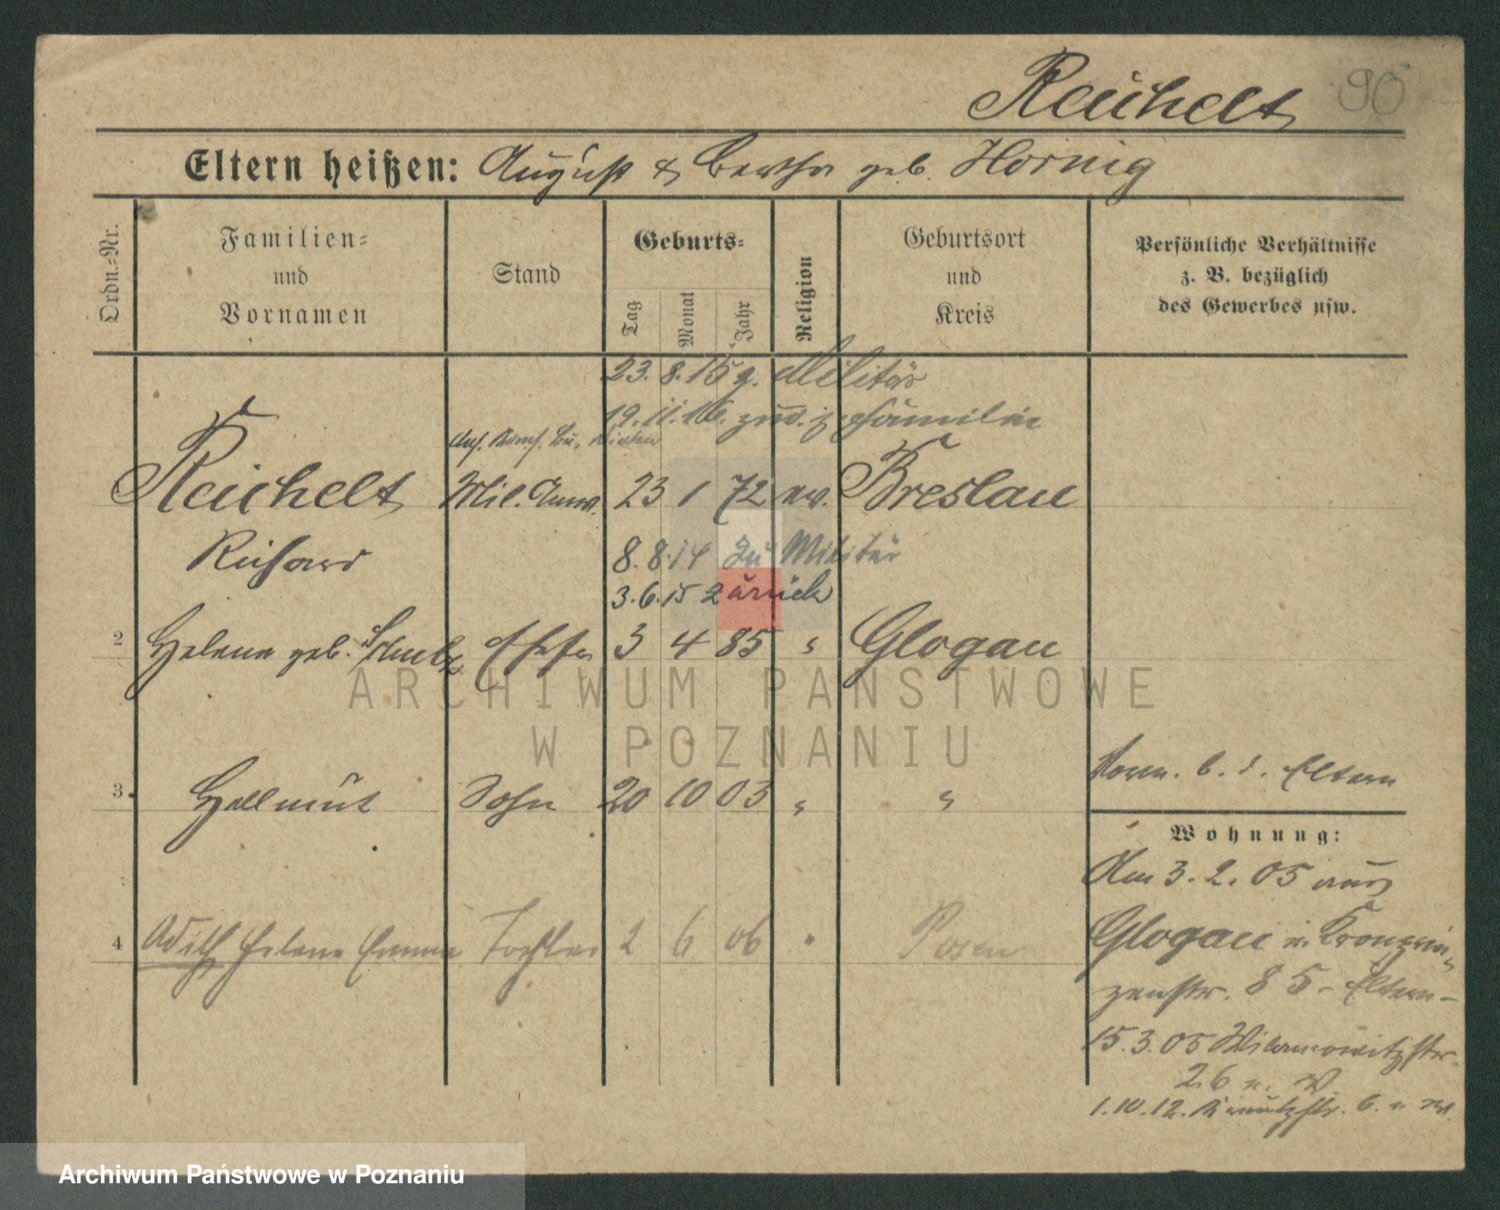 Reichelt 90
Eltern heißen: August & Bertha geb. Hornig
Ordn.-Nr.
Familien-
und
Vornamen
Stand
Geburts-
Tag
Monat
Jahr
Religion
Geburtsort
und
Kreis
Persönliche Verhältnisse
z. B. bezüglich
des Gewerbes usw.
23. 8. 15 z. Militär
19. 11. 16. zur. z. Familie
Reichelt Mil. Anw. 23 1 72 ev. Breslau
Richard
8. 8. 14 zu Militär
3. 6. 15 zurück
2 Helene geb. Schulz Ehefr 3 4 85 " Glogau
3. Hellmut Sohn 20 10 03 " "
4 Edith Helene Emma Tochter 2 6 06 " Posen
b. d. Eltern
Wohnung:
Am 3. 2. 05 aus
Glogau n. Kronprin-
zenstr. 85 - Eltern -
15. 3. 05 Wilamowitzstr.
26
1. 10. 12. 6.
ARCHIWUM PAŃSTWOWE
W POZNANIU
Archiwum Państwowe w Poznaniu